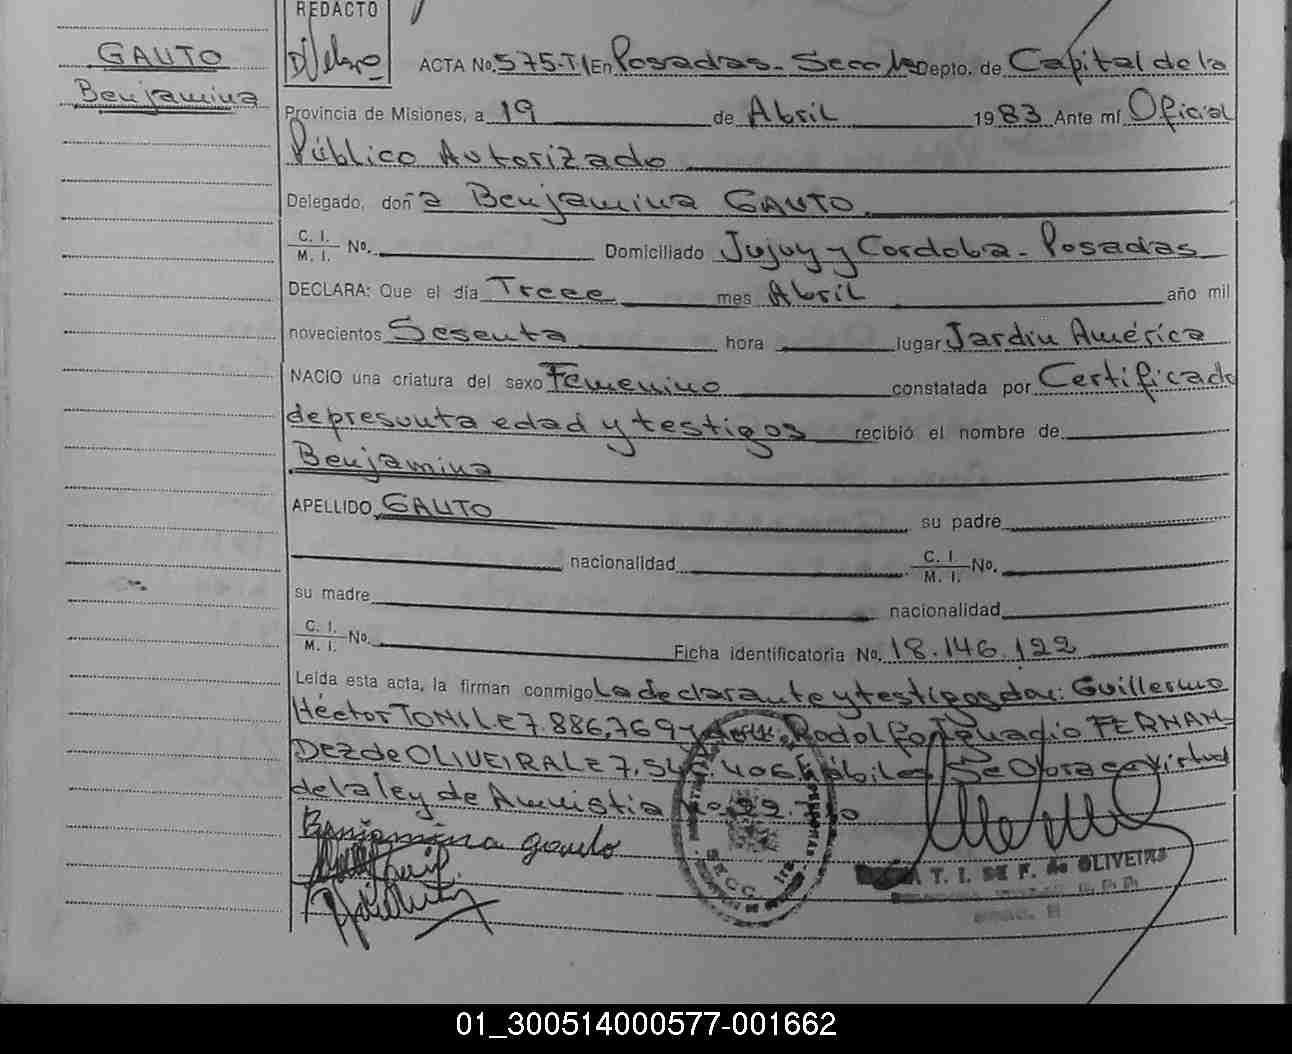 REDACTO
GAUTO
Benjamina
ACTA No. 575-T.I En Posadas - Secc 1ra Depto. de Capital de la
Provincia de Misiones, a 19 de Abril 1983 Ante mí Oficial
Público Autorizado
Delegado, doña Benjamina GAUTO
C. I.
M. I. No. Domiciliado Jujuy y Cordoba - Posadas
DECLARA: Que el día Trece mes Abril año mil
novecientos Sesenta hora lugar Jardin América
NACIO una criatura del sexo Femenino constatada por Certificado
de presunta edad y testigos recibió el nombre de
Benjamina
APELLIDO GAUTO su padre
nacionalidad C. I.
M. I. No.
su madre nacionalidad
C. I.
M. I. No. Ficha identificatoria No. 18.146.122
Leída esta acta, la firman conmigo la declarante y testigos don: Guillermo
Héctor TONI LE 7.886,769 y Rodolfo Ignacio FERNAN-
DEZ de OLIVEIRA LE 7.54 .406 hábiles Se Obra en virtud
de la ley de Amnistia
Benjamina gauto
T. I. SE F. de OLIVEIRA
01_300514000577-001662